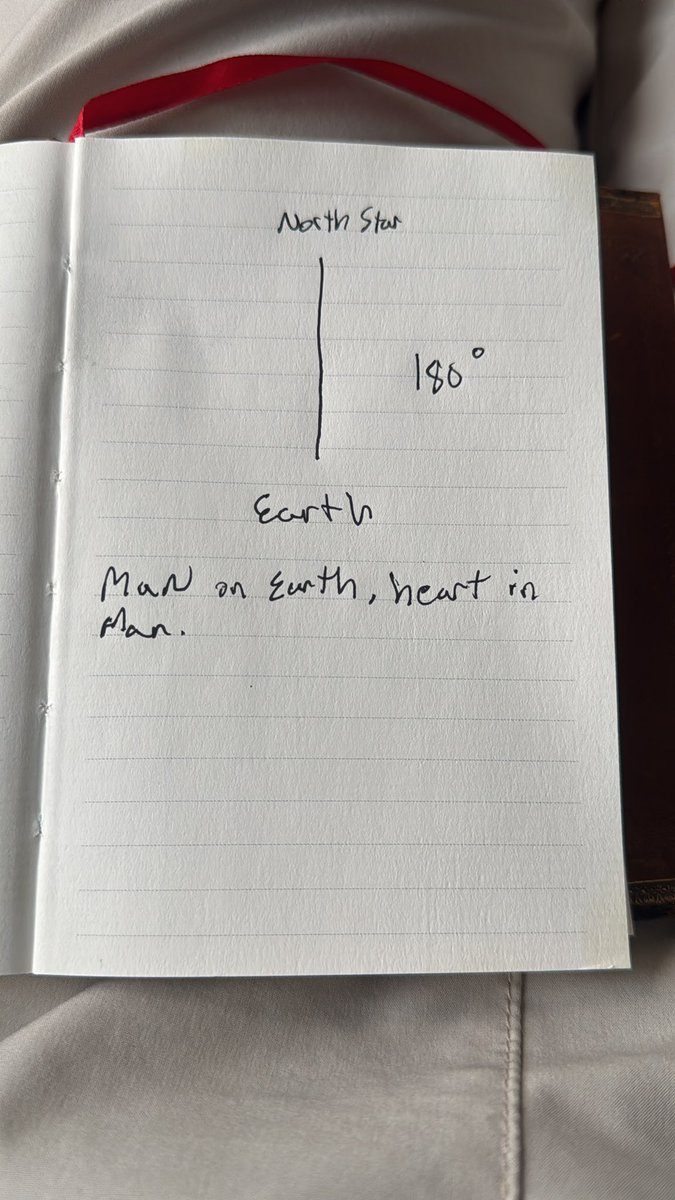 North Star
180°
Earth
Man on Earth, heart in
Man.